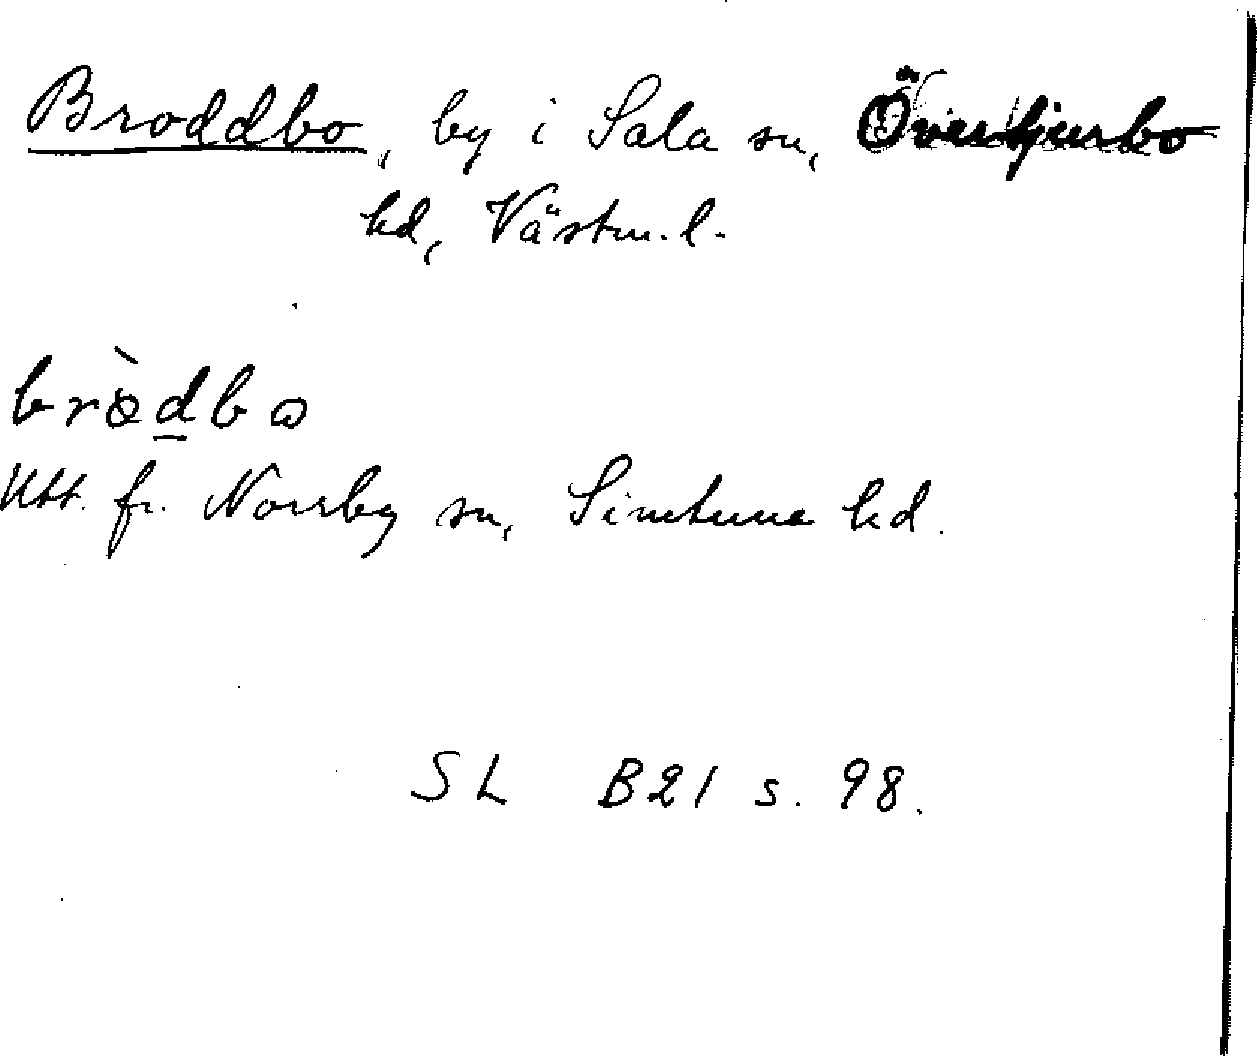 Broddbo, by i Sala sn, Övertjurbo
hd, Västm. l.
brò̀dbω
Utt. fr. Norrby sn, Simtuna hd.
SL B21 s. 98.